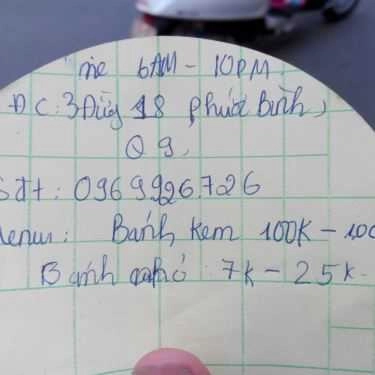 me 6AM - 10PM.
ĐC: 3 Đường 18 Phước Bình,
Q9.
Sđt: 0969926.726
Menu: Bánh kem 100K - 100
Bánh nhỏ: 7k - 25k.